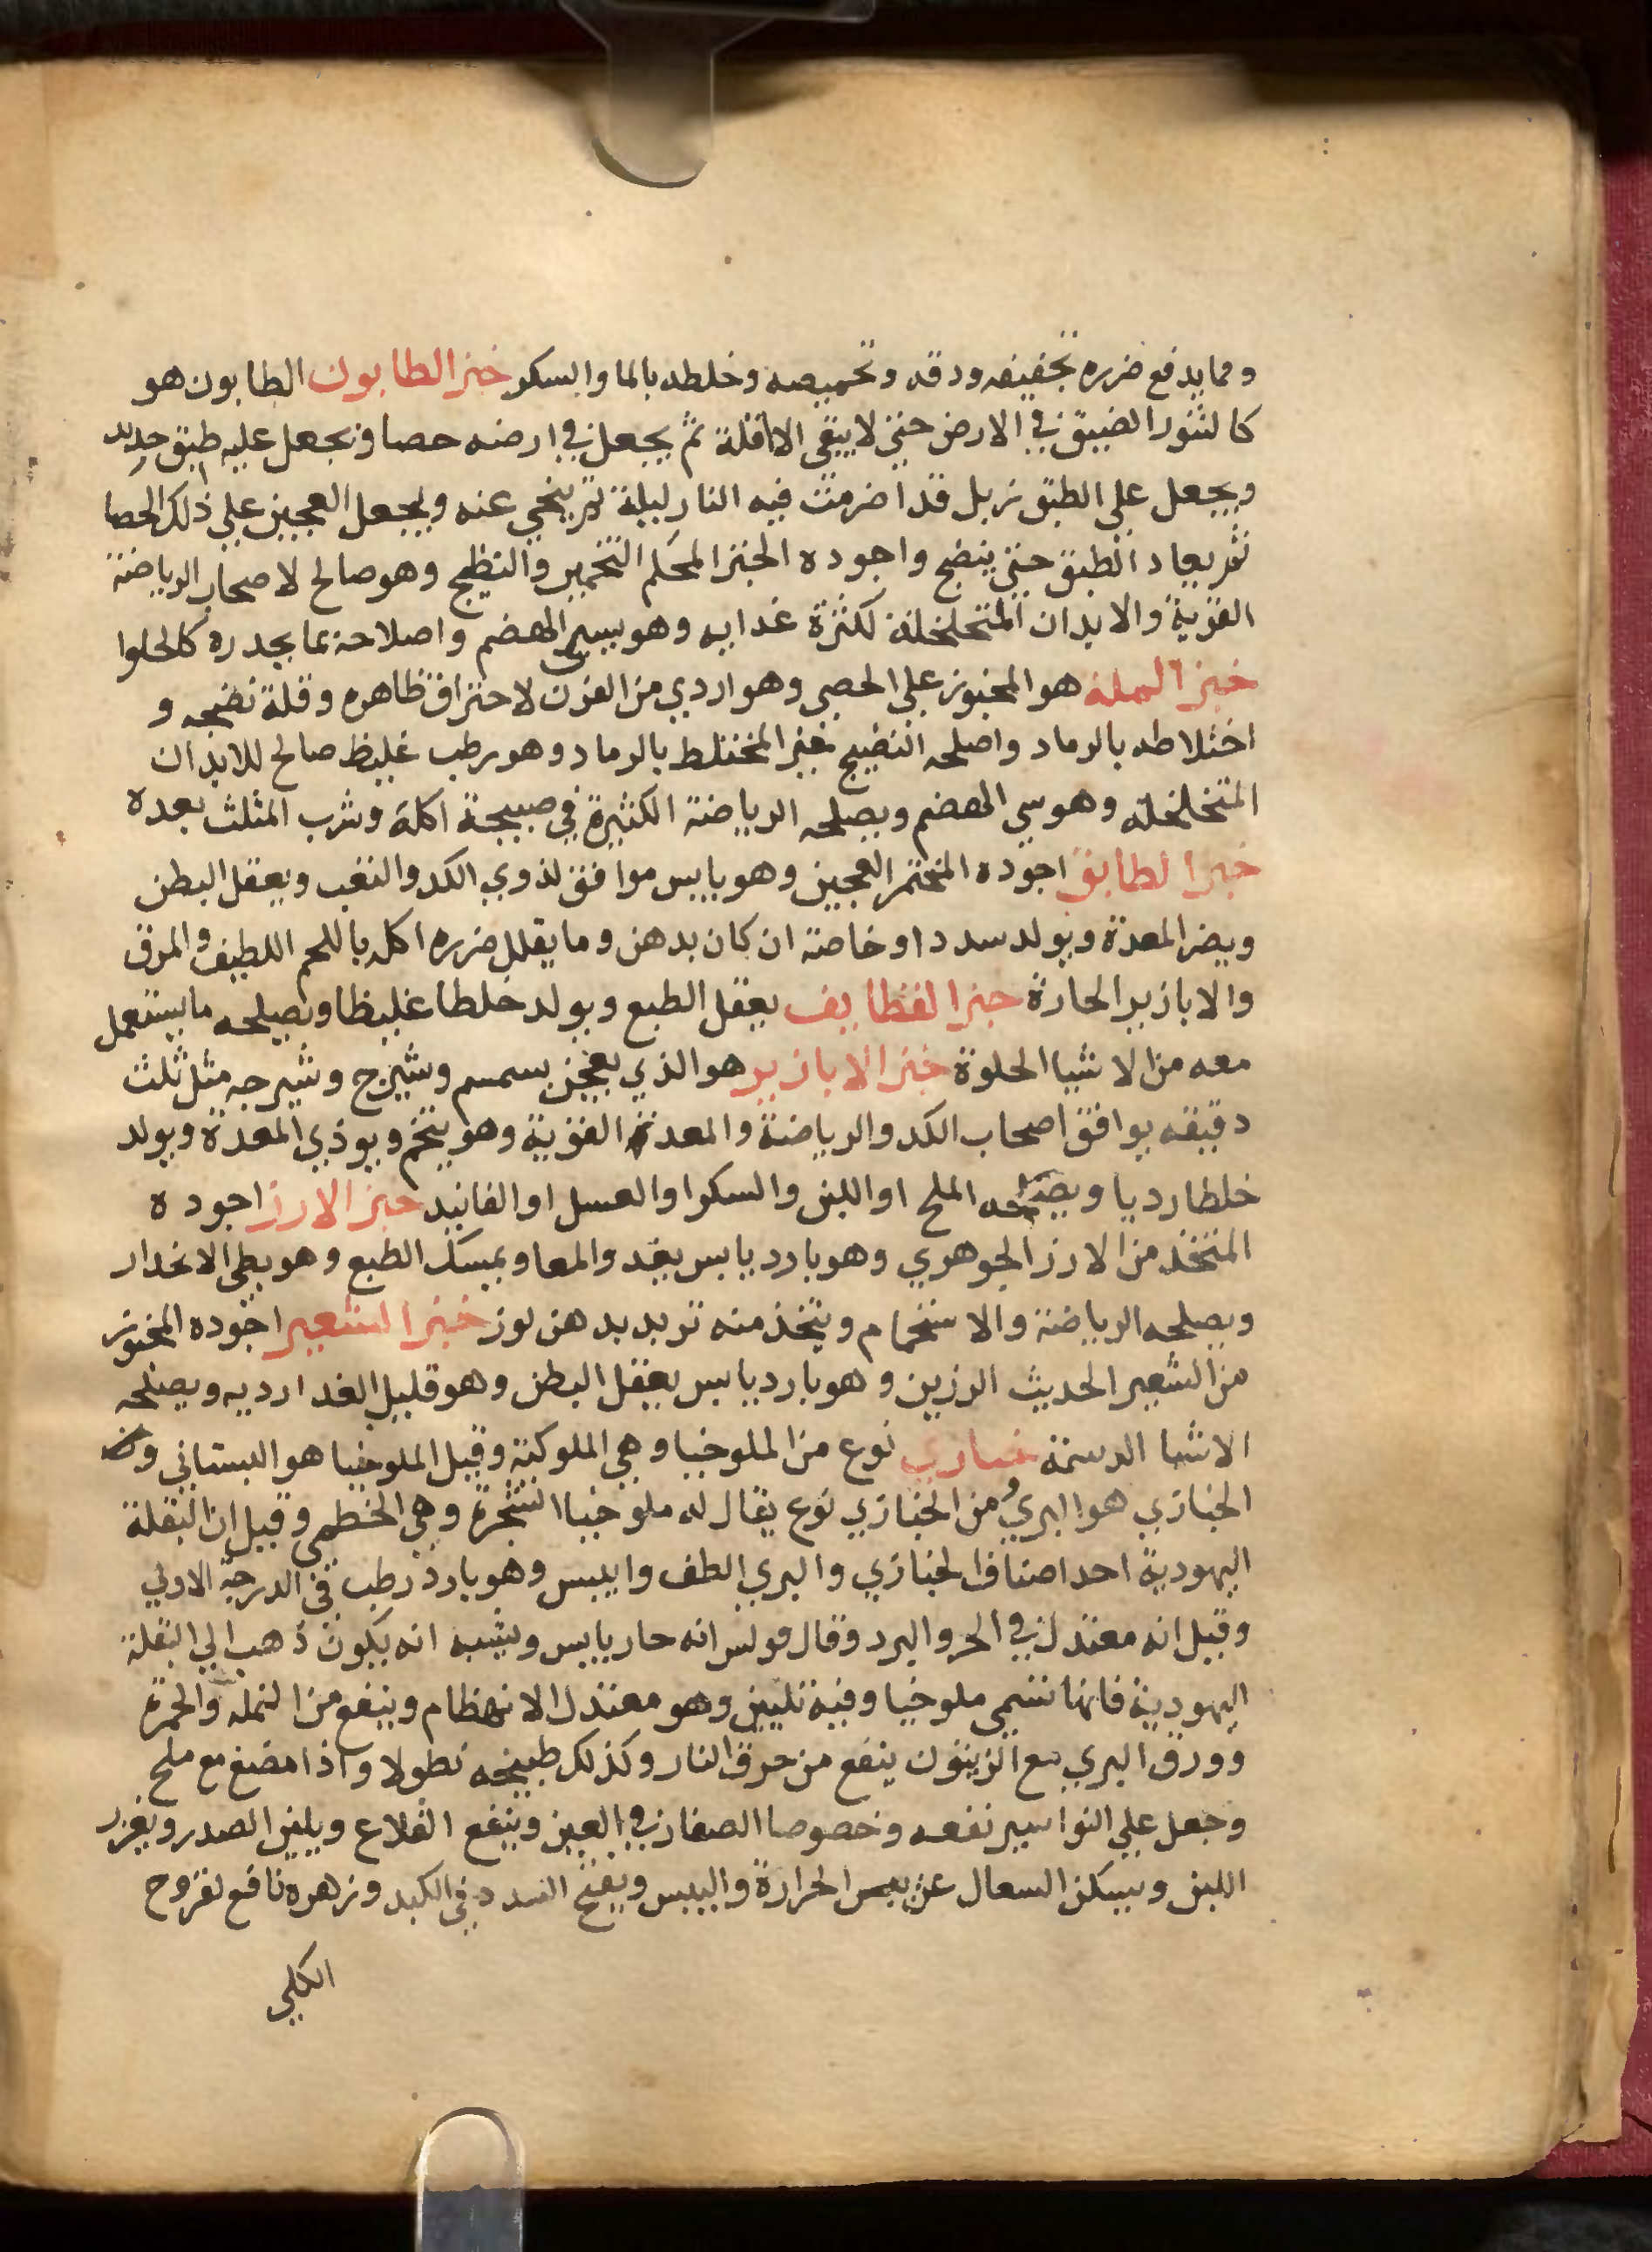 ومما يدفع ضرره تجفيفه ودقه وتحميصه وخلطه بالما والسكر خبز الطابون الطابون هو
كالتنور الضيق في الارض حتى لا يبقى الا اقلة ثم يجعل في ارضه حصا ويجعل عليه طبق حديد
ويجعل على الطبق زبل قد اضرمت فيه النار ليلة ثم ينحي عنه ويجعل العجين على ذلك الحصا
ثم يعاد الطبق حتى ينضج واجوده الخبز المحكم التخمير والنضيج وهو صالح لاصحاب الرياضة
القوية والابدان المتخلخلة لكثرة غدايه وهو يسير الهضم واصلاحه بما يحدره كالحلوا
خبز الملة هو المخبوز على الحصى وهو اردي من الفرن لاحتراق ظاهره وقلة نضجه و
اختلاطه بالرماد واصلحه النضيج غير المختلط بالرماد وهو رطب غليظ صالح للابدان
المتخلخله وهو سي الهضم ويصلحه الرياضة الكثيرة في صبيحة اكله وشرب المثلث بعده
خبز الطابق اجوده المختمر العجين وهو يابس موافق لذوي الكد والتعب ويعقل البطن
ويضر المعدة ويولد سددا وخاصة ان كان بدهن ومما يقلل ضرره اكله باللحم اللطيف والمرق
والابازير الحارة خبز القطايف يعقل الطبع ويولد خلطا غليظا ويصلحه ما يستعمل
معه من الاشيا الحلوة خبز الابازير هو الذي يعجن بسمسم وشيرج وشيرجه مثل ثلث
دقيقه يوافق اصحاب الكد والرياضة والمعدة القوية وهو يتخم ويوذي المعدة ويولد
خلطا رديا ويصلحه الملح او اللبن والسكر او العسل او الفانيد خبز الارز اجوده
المتخذ من الارز الجوهري وهو بارد يابس يغدو المعا ويمسك الطبع وهو بطي الانحدار
ويصلحه الرياضة والاستحمام ويتخذ منه ثريد بدهن لوز خبز الشعير اجوده المخبوز
من الشعير الحديث الرزين وهو بارد يابس يعقل البطن وهو قليل الغدا رديه ويصلحه
الاشيا الدسمة خبازي نوع من الملوخيا وهي الملوكية وقيل الملوخيا هو البستاني وان
الخبازي هو البري ومن الخبازي نوع يقال له ملوخيا الشجرة وهي الخطمي وقيل ان البقلة
اليهودية احد اصناف الخبازي والبري الطف وايبس وهو بارد رطب في الدرجة الاولي
وقيل انه معتدل في الحر والبرد وقال فولس انه حار يابس ويشبه انه يكون ذهب الي البقلة
اليهودية فانها تسمى ملوخيا وفيه تليين وهو معتدل الانهظام وينفع من النمله والحمرة
وورق البري مع الزيتون ينفع من حرق النار وكذلك طبيخه نطولا واذا مضغ مع ملح
وجعل علي النواسير نفعه وخصوصا الصغار في العين وينفع القلاع ويلين الصدر ويغزر
اللبن ويسكن السعال عن يبس الحرارة واليبس ويفتح السدد في الكبد وزهره نافع لقروح
الكلي